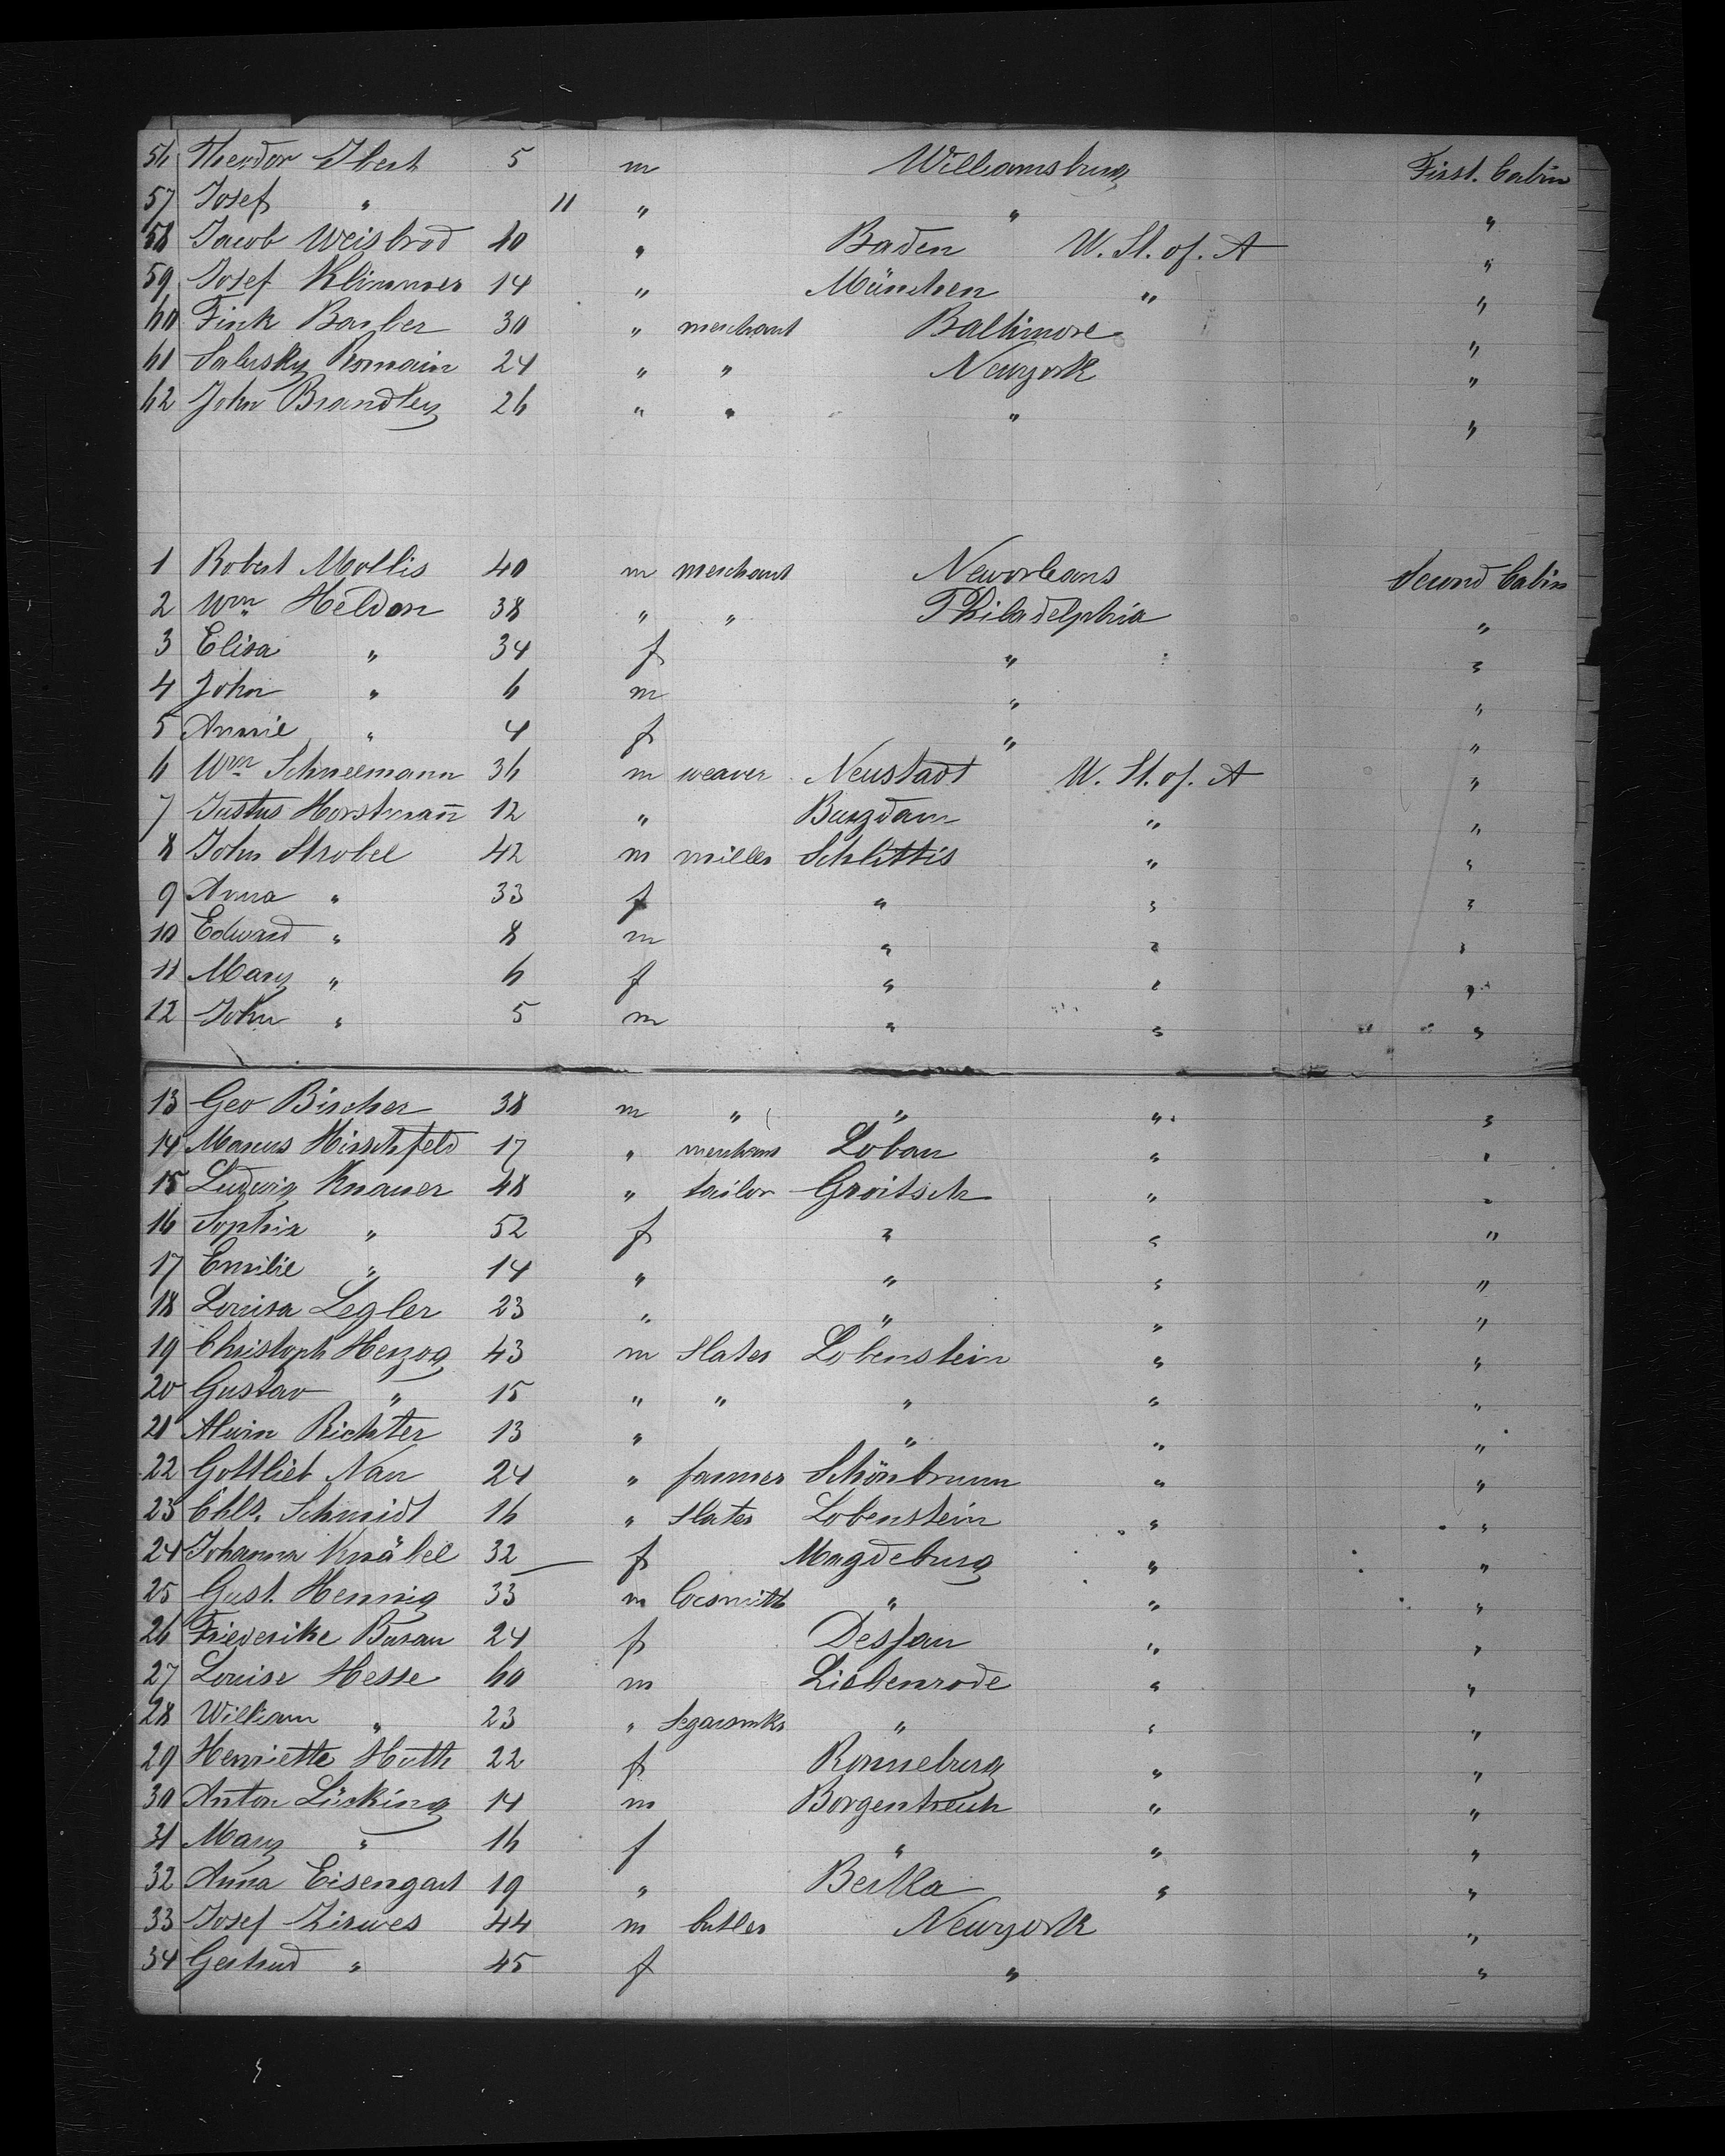 56 Theodor Ibert 5 m Williamsburg First. Cabin
57 Josef " 11 " " "
58 Jacob Weisbrod 40 " Baden U. St. of. A "
59 Josef Klimmer 14 " München " "
60 Fink Barber 30 " merchant Baltimore "
61 Salusky Romain 24 " " Newyork "
62 John Brandley 26 " " " "
1 Robert Mollis 40 m merchant Neworleans Second Cabin
2 Wm Heldon 38 " " Philadelphia "
3 Elisa " 34 f " "
4 John " 6 m " "
5 Annie " 4 f " "
6 Wm Schneemann 36 m weaver Neustadt U. St. of. A "
7 Justus Horstman̄ 12 " Burgdam " "
8 John Strobel 42 m miller Schlittis " "
9 Anna " 33 f " " "
10 Edward " 8 m " " "
11 Mary " 6 f " " "
12 John " 5 m " " "
13 Geo Bircher 38 m " " " "
14 Marcus Hirschfeld 17 " merchant Löbau " "
15 Ludwig Knauer 48 " tailor Groitsch " "
16 Sophia " 52 f " " "
17 Emilie " 14 " " " "
18 Louisa Legler 23 " " " "
19 Christoph Herzog 43 m Slater Lobenstein " "
20 Gustav " 15 " " " " "
21 Alwin Richter 13 " " " "
22 Gottlieb Nau 24 " farmer Schönbrunn " "
23 Schmidt 16 " Slater Lobenstein " "
24 Johanna Knäbel 32 — f Magdeburg " "
25 Gust. Hennig 33 m Locsmith " " "
26 Friederike Baran 24 f Dessau " "
27 Louise Hesse 60 m Liebenrode " "
28 William " 23 " Segarmkr " " "
29 Henriette Huth 22 f Ronneburg " "
30 Anton Lücking 14 m Borgentreich " "
31 Mary " 16 f " " "
32 Anna Eisengart 19 " Berka " "
33 Josef Zirwes 44 m butler Newyork "
34 Gertrud " 45 f " "